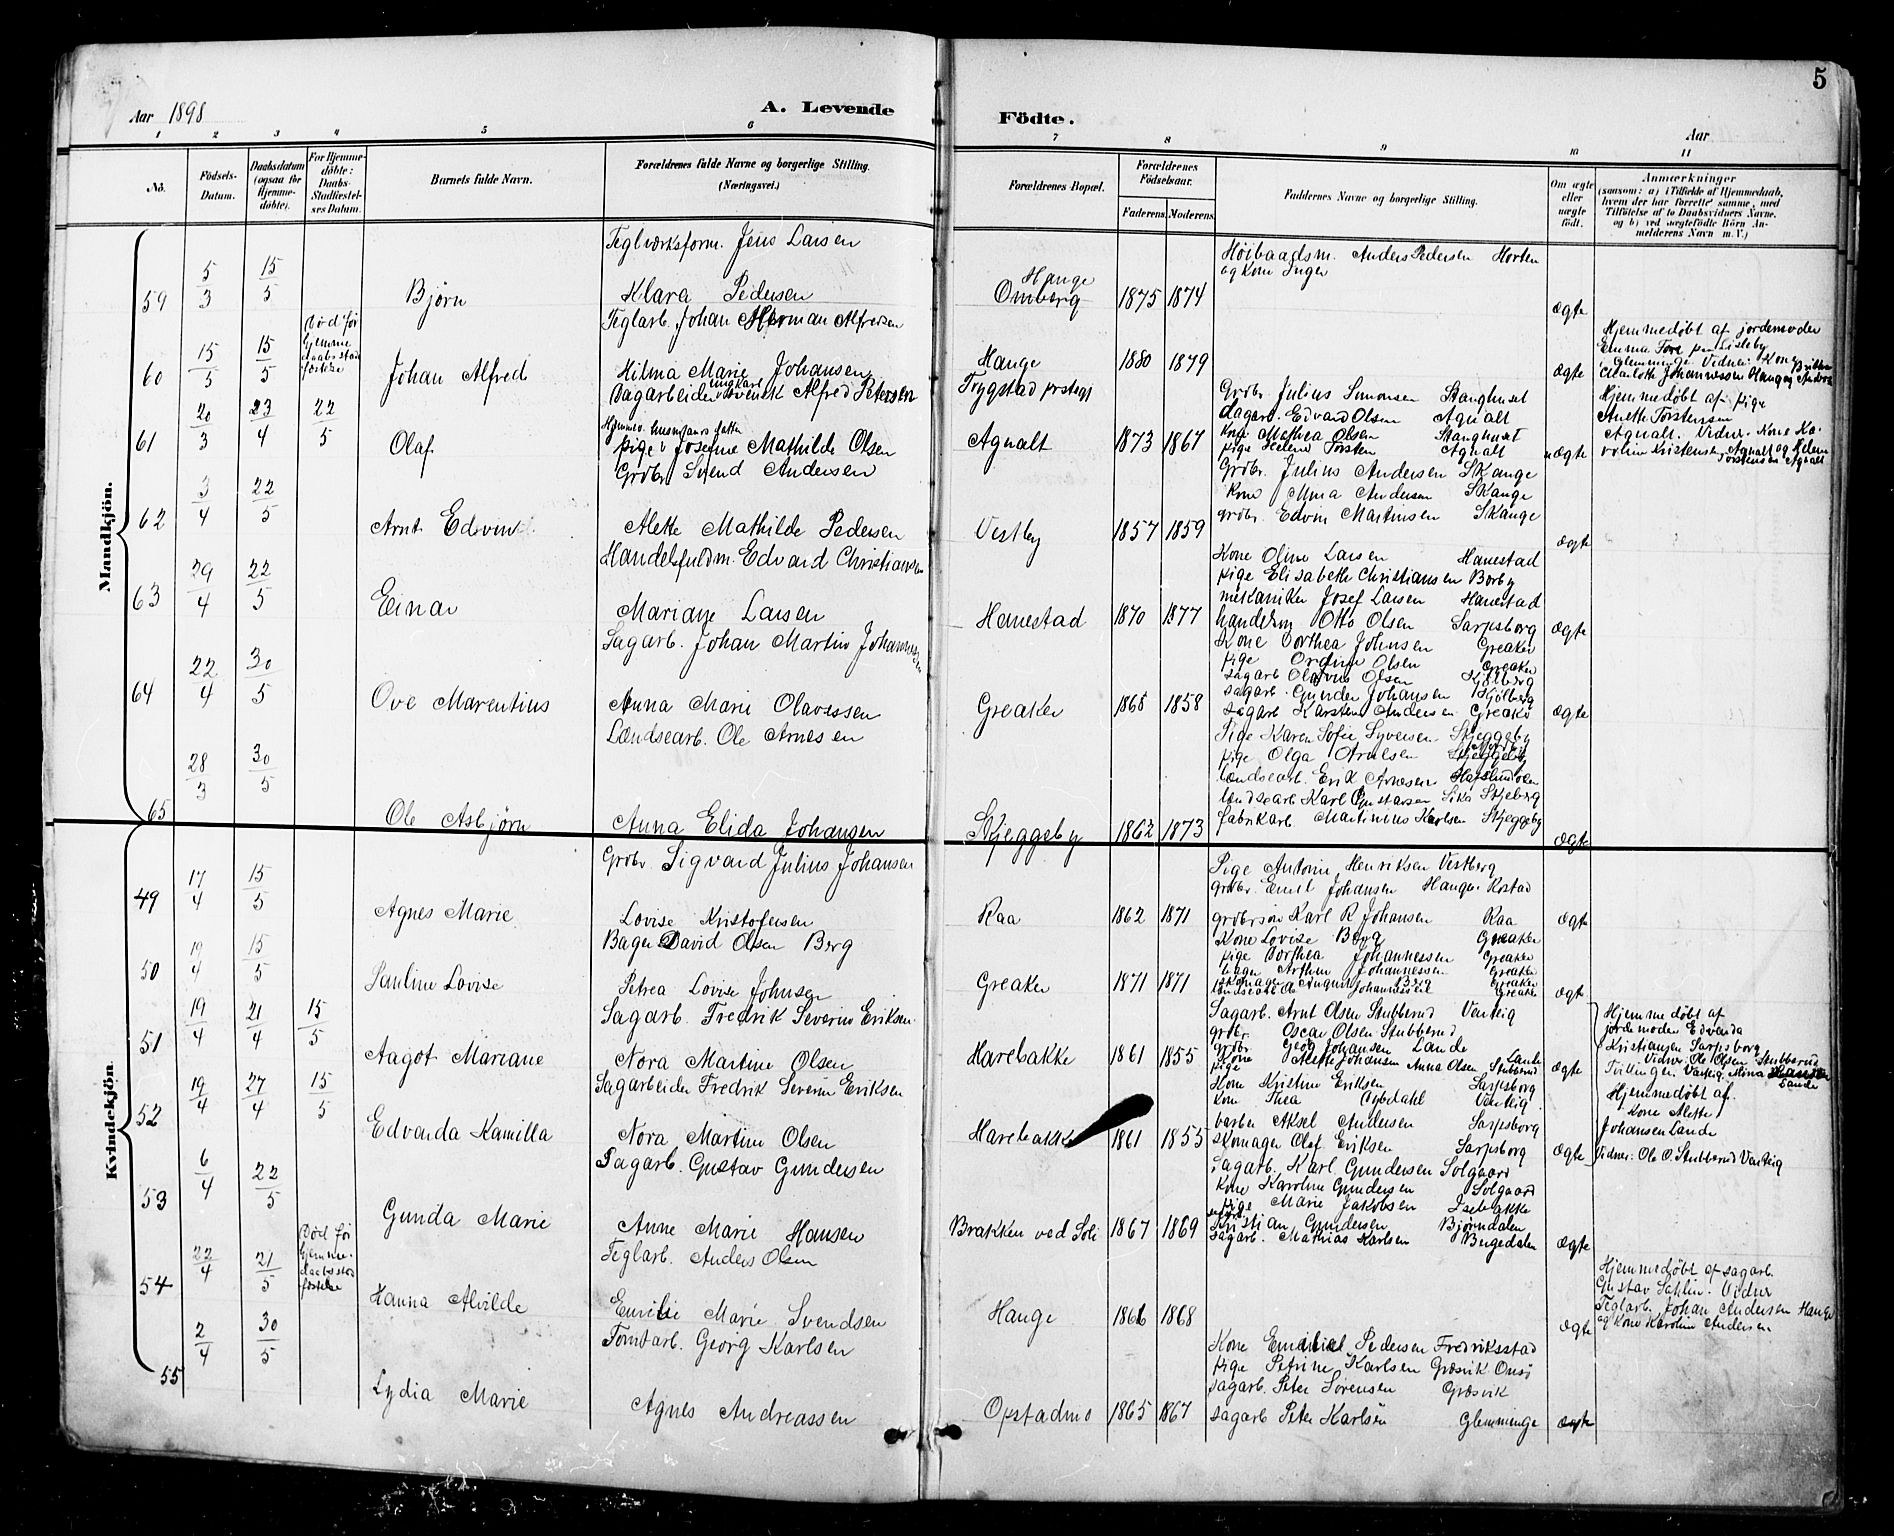 5
Aar 1898
A. Levende
Födte.
Aar
1 2 3 4 5 6 7 8 9 10 11
No.
Födsels-Datum.
Daabsdatum (ogsaa for Hjemme-döbte).
For Hjemme-döbte: Daabs-Stadfæstel-ses Datum.
Barnets fulde Navn.
Forældrenes fulde Navne og borgerlige Stilling.
(Næringsvei.)
Forældrenes Bopæl.
Forældrenes Födselsaar.
Faderens. Moderens.
Faddernes Navne og borgerlige Stilling.
Om ægte eller uægte födt.
Anmærkninger
(saasom: a) i Tilfælde af Hjemmedaab, hvem der har forrettet samme, med Tilföielse af to Daabsvidners Navne, og b) ved uægtefödte Börn An-melderens Navn m. V.)
Mandkjön.
Teglværksform. Jens Larsen
Höibaadsm. Anders Pedersen Horten
og Kone Inger
59 5/3 15/5 Bjørn Klara Pedersen Hauge Omberg 1875 1874 ægte
Teglarb. Johan Herman Alfredsen
60 15/5 15/5 Død før Hjemme daabsstad fæstelse Johan Alfred Hilma Marie Johansen Hauge 1880 1879 ægte
Hjemmedøbt af jordemoder
Emma Tore paa Lisleby
i Glemminge. Vidner: Kone
Charlotte Johannessen Hauge
Sagarbeider ungkarl Svensk Alfred Petersen
Trygstad prstegj
61 20/3 23/4 22/5 Olaf
pige Josefine Mathilde Olsen
Agnalt 1873 1867 uægte
Grdbr Julius Simonsen Stanghuset
dagarb. Edvard Olsen Agnalt
Kone Mathea Olsen Stanghuset
pige Helene Torsten Agnalt
Hjemmedøbt af pige
Anette Torstensen
Agnalt. Vidner. Kone Ka-
roline Kristensen Agnalt og Helene
Torstensen Agnalt
Grdbr Svend Andersen
62 3/4 22/5 Arnt Edvin Alette Mathilde Pedersen Vestby 1857 1859 ægte
Grdbr. Julius Andersen Skange
Kone Anna Andersen Skange
grdbr. Edvin Martinsen Skange
Handelsfuldm. Edvard Christiansen
63 29/4 22/5 Einar Mariane Larsen Hanestad 1870 1877 ægte
Kone Oline Larsen Hanestad
pige Elisabeth Christiansen Borby
mekaniker Josef Larsen Hanestad
handelsm Otto Olsen Sarpsborg
Sagarb. Johan Martin Johannessen
64 22/4 30/5 Ove Marentius Anna Marie Olavessen Greaker 1865 1858 ægte
Kone Dorthea Johnsen Greaker
pige Ordine Olsen Greaker
sagarb Olafius Olsen Kjölberg
sagarb. Gunder Johansen Kjölberg
sagarb Karsten Andersen Greaker
Lændsearb. Ole Arnesen
65 28/3 30/5 Ole Asbjørn Anna Elida Johansen Skjeggeby 1862 1873 ægte
Pige Karen Sofie Syversen Skjeggeby
pige Olga Arnesen Skjeggeby
lændsearb. Erik Arnesen Hafslundsøen
lændsearb Karl Gustavsen Sika Skjeberg
fabrikarb. Martinius Karlsen Skjeggeby
Kvindekjön.
Grdbr Sigvard Julius Johansen
49 17/4 15/5 Agnes Marie Lovise Kristofersen Raa 1862 1871 ægte
Pige Antonie Henriksen Vestberg
grdbr. Emil Johansen Hauge Rostad
grdbrsøn Karl R Johansen Raa
Bager David Olsen Berg
50 19/4 15/5 Pauline Lovise Petrea Lovise Johnsen Greaker 1871 1871 ægte
Kone Lovise Berg Greaker
pige Dorthea Johannessen Greaker
bager Arthur Johannessen Greaker
skomager August Berg Greaker
lændsearb Ole Johannessen Greaker
Sagarb. Fredrik Severin Eriksen
51 19/4 21/4 15/5 Aagot Mariane Nora Martine Olsen Harebakke 1861 1855 ægte
Sagarb. Arnt Olsen Stubberud Varteig
grdbr. Oscar Olsen Stubberud
grdbr. Georg Johansen Lande
Kone Alette Johansen Lande
pige Anna Olsen Stubberud
Hjemmedøbt af
jordemoder Edvarda
Kristiansen Sarpsborg
Vidner: Ole Olsen Stubberud
Tvillinger. Varteig Mina Lande
Sagarbeider Fredrik Severin Eriksen
52 19/4 27/4 15/5 Edvarda Kamilla Nora Martine Olsen Harebakke 1861 1855 ægte
Kone Kristine Eriksen Sarpsborg
Kone Thea Varteig
barber Aksel Andersen Sarpsborg
skomager Olaf Eriksen Sarpsborg
Hjemmedøbt af
Kone Alette
Johansen Lande
Vidner: Ole O. Stubberud Varteig
Sagarb. Gustav Gundersen
53 6/4 22/5 Gunda Marie Anne Marie Hansen Brakken ved Soli 1867 1869 ægte
Sagarb. Karl Gundersen Solgaard
Kone Karoline Gundersen Solgaard
pige Marie Jakobsen Isebakke
Kristian Gundersen Bjørndalen
sagarb. Mathias Karlsen Bergedalen
Teglarb. Anders Olsen
54 22/4 21/5 Død før Hjemme-daabsstad fæstelse Hanna Alvilde Emilie Marie Svendsen Hauge 1866 1868 ægte
Hjemmedøbt af sagarb.
Gustav Sahlin. Vidner
Teglarb. Johan Andersen Hauge
og Kone Karoline Andersen
Tomtarb. Georg Karlsen
55 2/4 30/5 Lydia Marie Agnes Andreassen Opstadmo 1865 1867 ægte
Kone Emilie Pedersen Fredriksstad
pige Petrine Karlsen Græsvik Onsö
sagarb. Peter Sørensen Græsvik
sagarb Peter Karlsen Glemminge